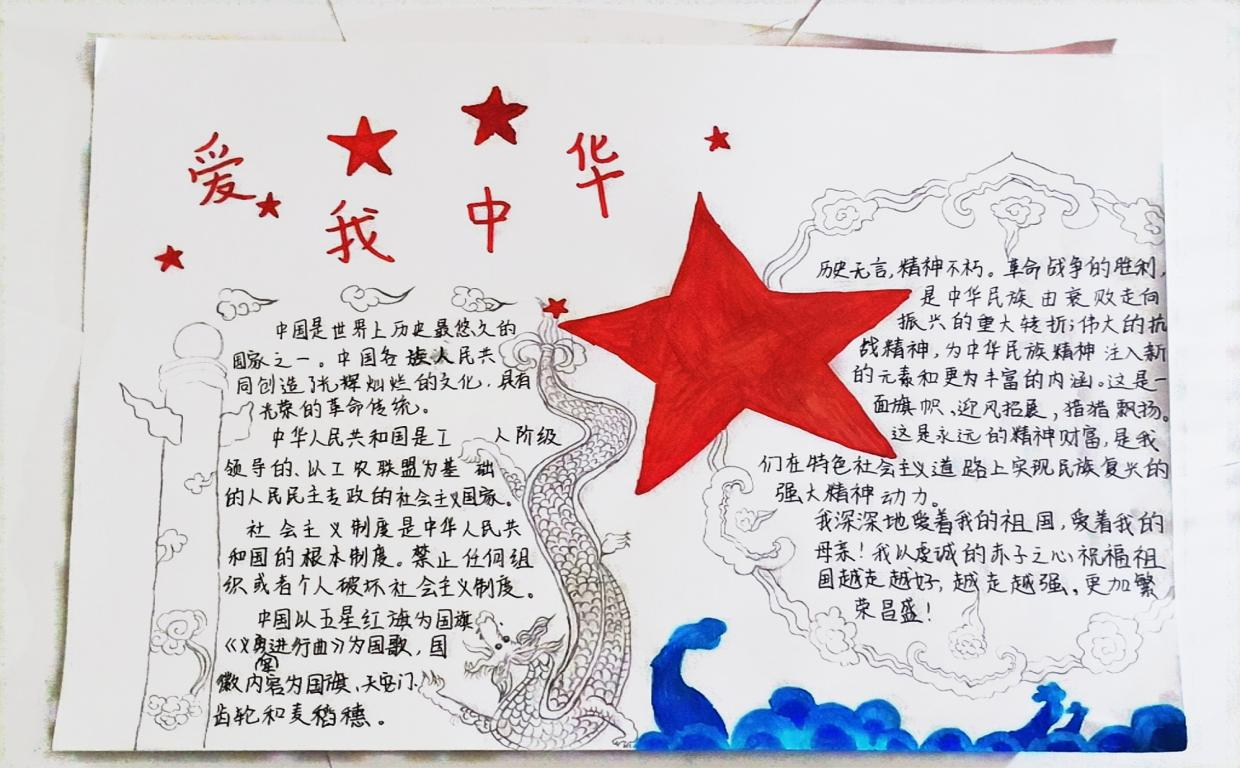 爱我中华
中国是世界上历史最悠久的
国家之一。中国各族人民共
同创造了光辉灿烂的文化，具有
光荣的革命传统。
中华人民共和国是工人阶级
领导的、以工农联盟为基础
的人民民主专政的社会主义国家。
社会主义制度是中华人民共
和国的根本制度。禁止任何组
织或者个人破坏社会主义制度。
中国以五星红旗为国旗，
《义勇军进行曲》为国歌，国
徽内容为国旗、天安门、
齿轮和麦稻穗。
历史无言，精神不朽。革命战争的胜利，
是中华民族由衰败走向
振兴的重大转折；伟大的抗
战精神，为中华民族精神注入新
的元素和更为丰富的内涵。这是一
面旗帜，迎风招展，猎猎飘扬。
这是永远的精神财富，是我
们在特色社会主义道路上实现民族复兴的
强大精神动力。
我深深地爱着我的祖国，爱着我的
母亲！我以虔诚的赤子之心祝福祖
国越走越好，越走越强，更加繁
荣昌盛！